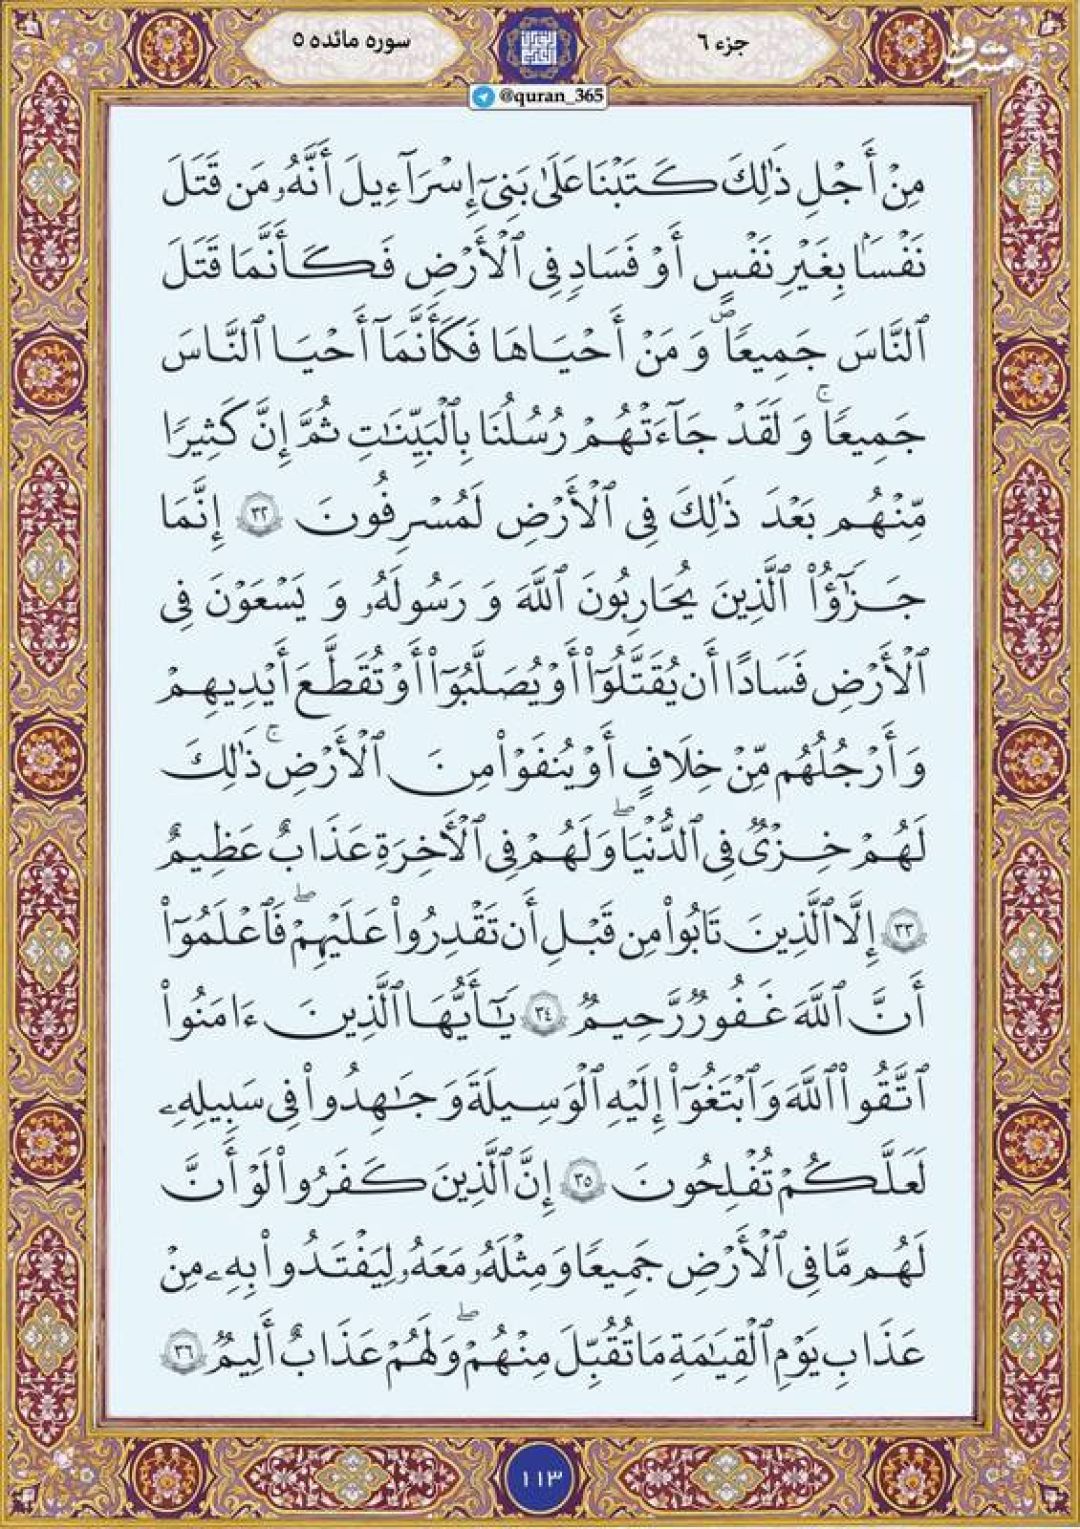 جزء ۶
سوره مائده ۵
مشرق
@quran_365
مِنْ أَجْلِ ذَٰلِكَ كَتَبْنَا عَلَىٰ بَنِىٓ إِسْرَآءِيلَ أَنَّهُۥ مَن قَتَلَ
نَفْسًۢا بِغَيْرِ نَفْسٍ أَوْ فَسَادٍۢ فِى ٱلْأَرْضِ فَكَأَنَّمَا قَتَلَ
ٱلنَّاسَ جَمِيعًاۖ وَ مَنْ أَحْيَاهَا فَكَأَنَّمَآ أَحْيَا ٱلنَّاسَ
جَمِيعًاۚ وَ لَقَدْ جَآءَتْهُمْ رُسُلُنَا بِٱلْبَيِّنَٰتِ ثُمَّ إِنَّ كَثِيرًا
مِّنْهُم بَعْدَ ذَٰلِكَ فِى ٱلْأَرْضِ لَمُسْرِفُونَ ٣٢ إِنَّمَا
جَزَٰٓؤُا۟ ٱلَّذِينَ يُحَارِبُونَ ٱللَّهَ وَ رَسُولَهُۥ وَ يَسْعَوْنَ فِى
ٱلْأَرْضِ فَسَادًا أَن يُقَتَّلُوٓا۟ أَوْ يُصَلَّبُوٓا۟ أَوْ تُقَطَّعَ أَيْدِيهِمْ
وَ أَرْجُلُهُم مِّنْ خِلَافٍ أَوْ يُنفَوْا۟ مِنَ ٱلْأَرْضِۚ ذَٰلِكَ
لَهُمْ خِزْىٌ فِى ٱلدُّنْيَاۖ وَ لَهُمْ فِى ٱلْأَخِرَةِ عَذَابٌ عَظِيمٌ
٣٣ إِلَّا ٱلَّذِينَ تَابُوا۟ مِن قَبْلِ أَن تَقْدِرُوا۟ عَلَيْهِمْۖ فَٱعْلَمُوٓا۟
أَنَّ ٱللَّهَ غَفُورٌ رَّحِيمٌ ٣٤ يَٰٓأَيُّهَا ٱلَّذِينَ ءَامَنُوا۟
ٱتَّقُوا۟ ٱللَّهَ وَ ٱبْتَغُوٓا۟ إِلَيْهِ ٱلْوَسِيلَةَ وَ جَٰهِدُوا۟ فِى سَبِيلِهِۦ
لَعَلَّكُمْ تُفْلِحُونَ ٣٥ إِنَّ ٱلَّذِينَ كَفَرُوا۟ لَوْ أَنَّ
لَهُم مَّا فِى ٱلْأَرْضِ جَمِيعًا وَ مِثْلَهُۥ مَعَهُۥ لِيَفْتَدُوا۟ بِهِۦ مِنْ
عَذَابِ يَوْمِ ٱلْقِيَٰمَةِ مَا تُقُبِّلَ مِنْهُمْۖ وَ لَهُمْ عَذَابٌ أَلِيمٌ ٣٦
١١٣